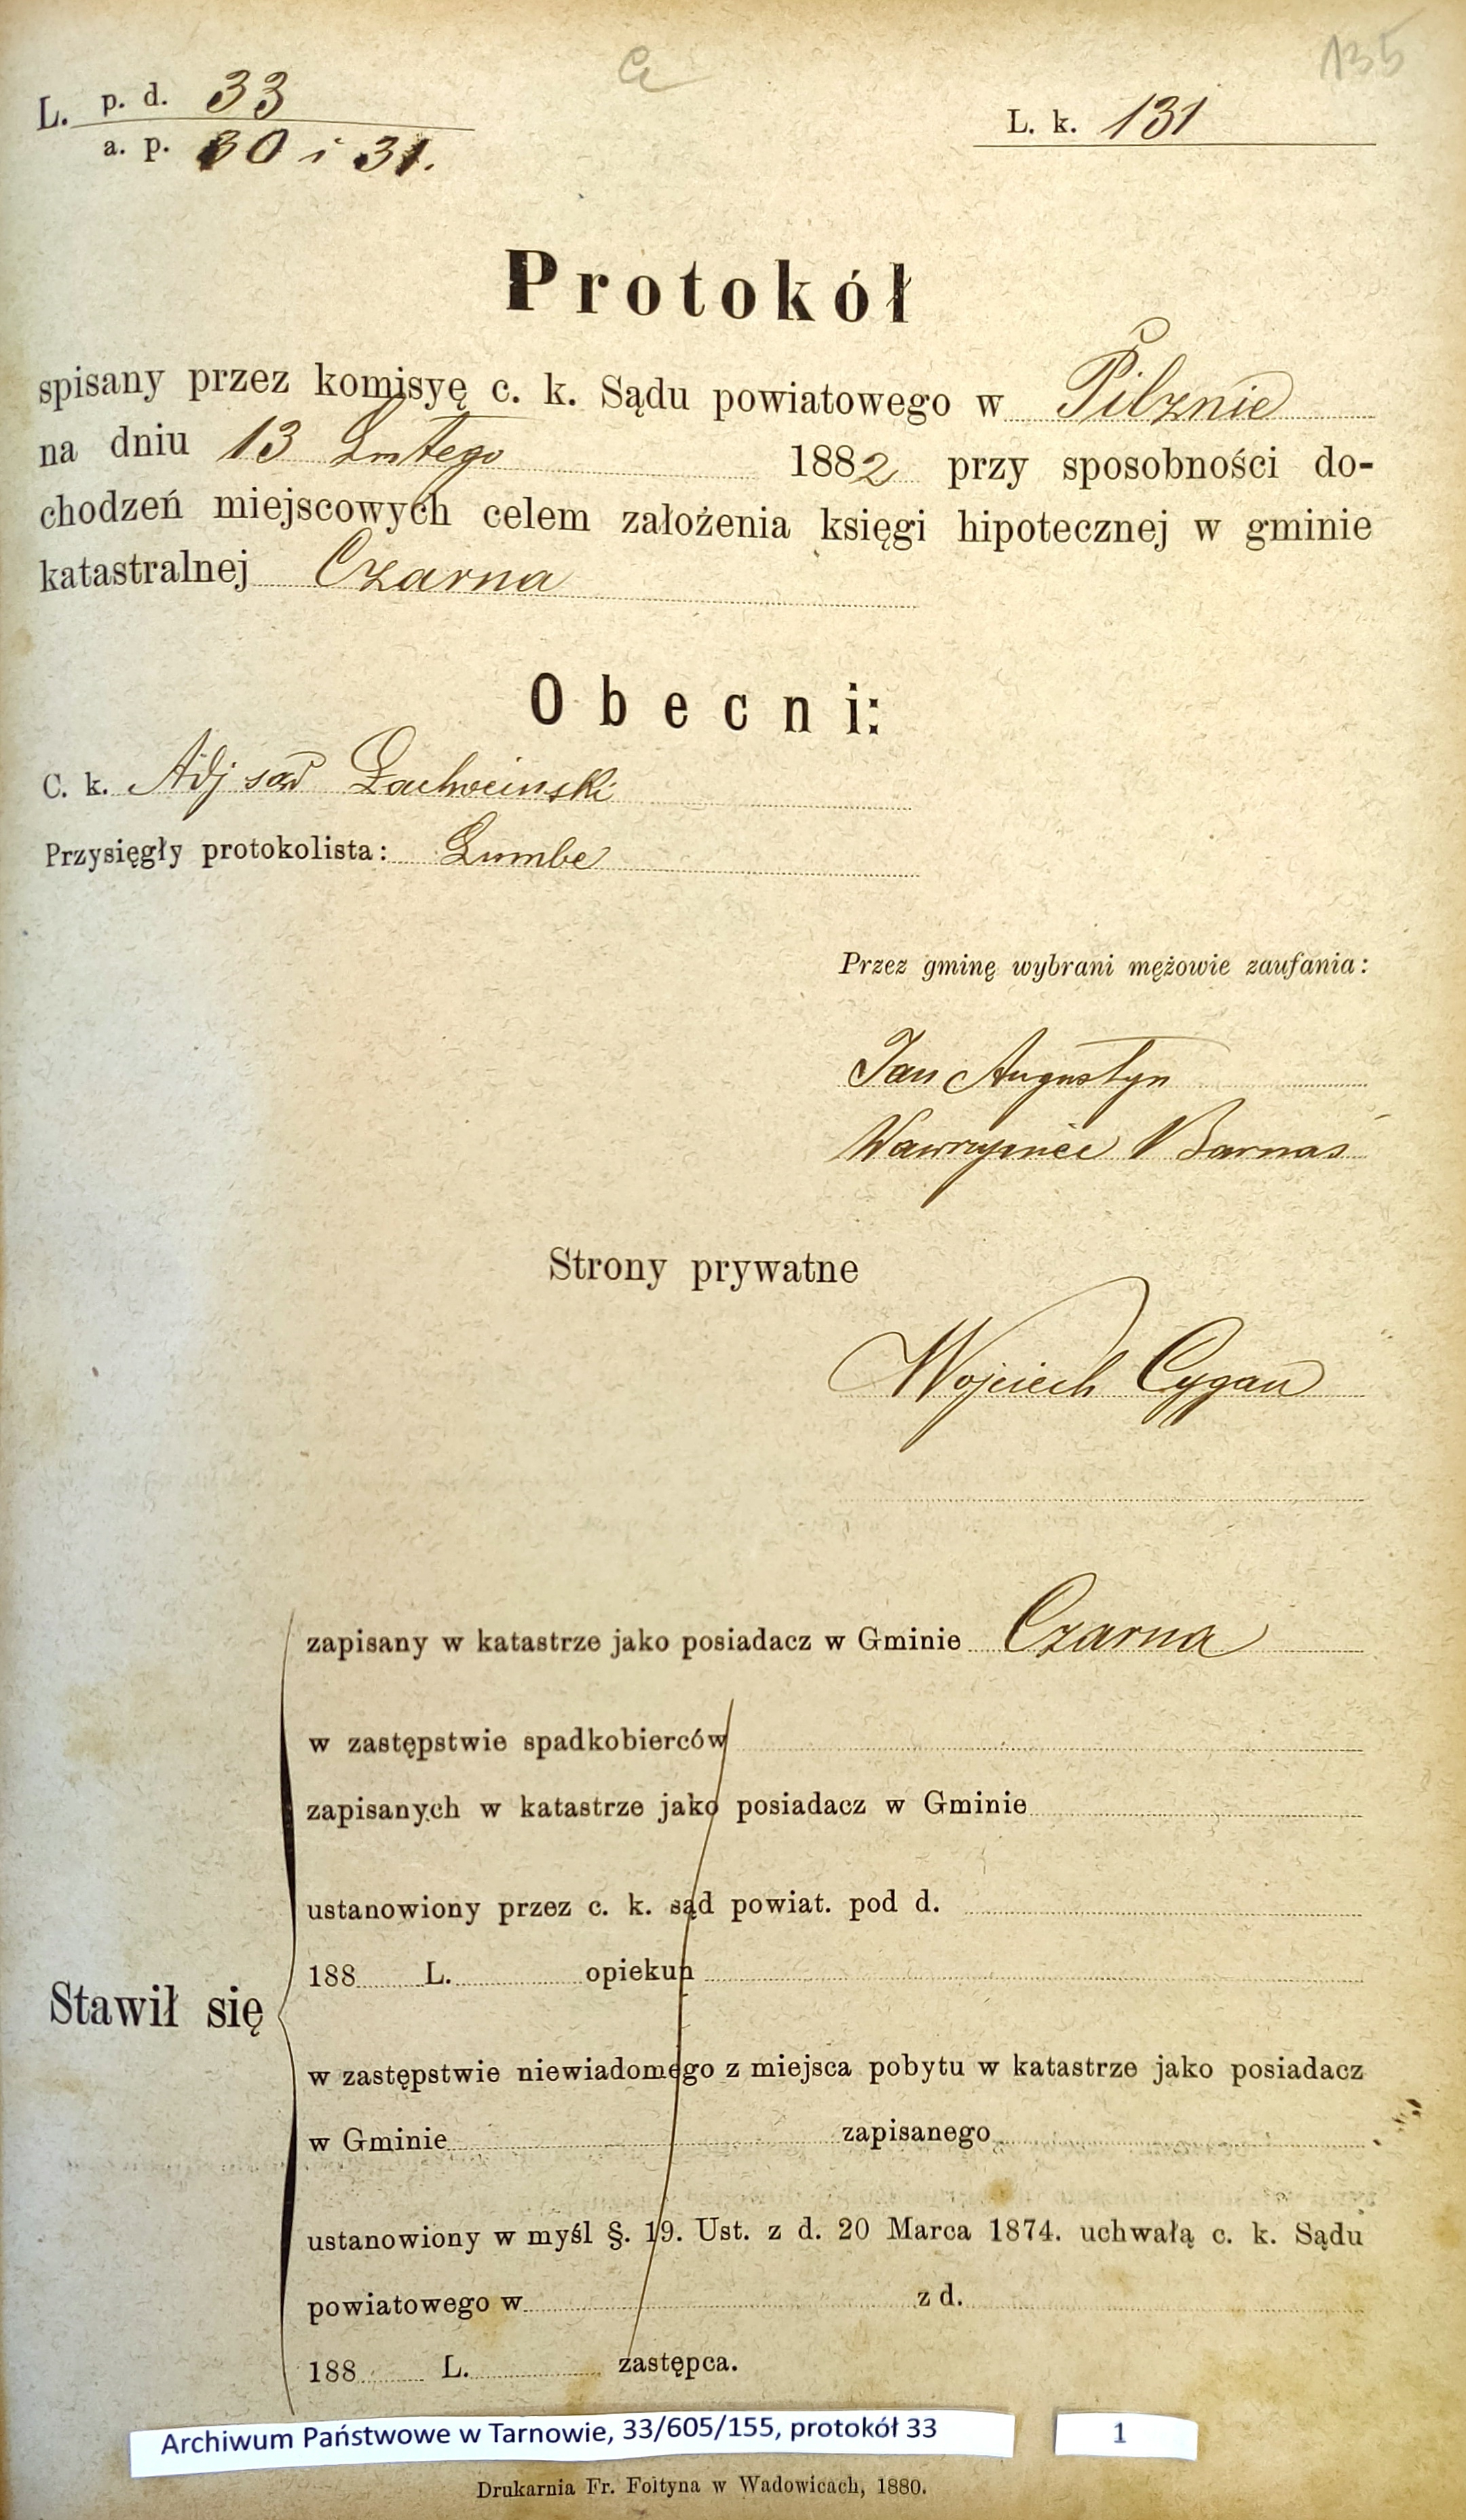 135
L. p. d. 33
a. p. 30 i 31.
L. k. 131
Protokół
spisany przez komisyę c. k. Sądu powiatowego w Pilznie
na dniu 13 Lutego 1882 przy sposobności do-
chodzeń miejscowych celem założenia księgi hipotecznej w gminie
katastralnej Czarna
Obecni:
C. k. Adj sąd
Przysięgły protokolista:
Przez gminę wybrani mężowie zaufania:
Jan Augustyn
Wawrzyniec Barnaś
Strony prywatne
Wojciech Cygan
zapisany w katastrze jako posiadacz w Gminie Czarna
w zastępstwie spadkobierców
zapisanych w katastrze jako posiadacz w Gminie
ustanowiony przez c. k. sąd powiat. pod d.
188 L. opiekun
Stawił się
w zastępstwie niewiadomego z miejsca pobytu w katastrze jako posiadacz
w Gminie zapisanego
ustanowiony w myśl §. 19. Ust. z d. 20 Marca 1874. uchwałą c. k. Sądu
powiatowego w z d.
188 L. zastępca.
Archiwum Państwowe w Tarnowie, 33/605/155, protokół 33
1
Drukarnia Fr. Foltyna w Wadowicach, 1880.